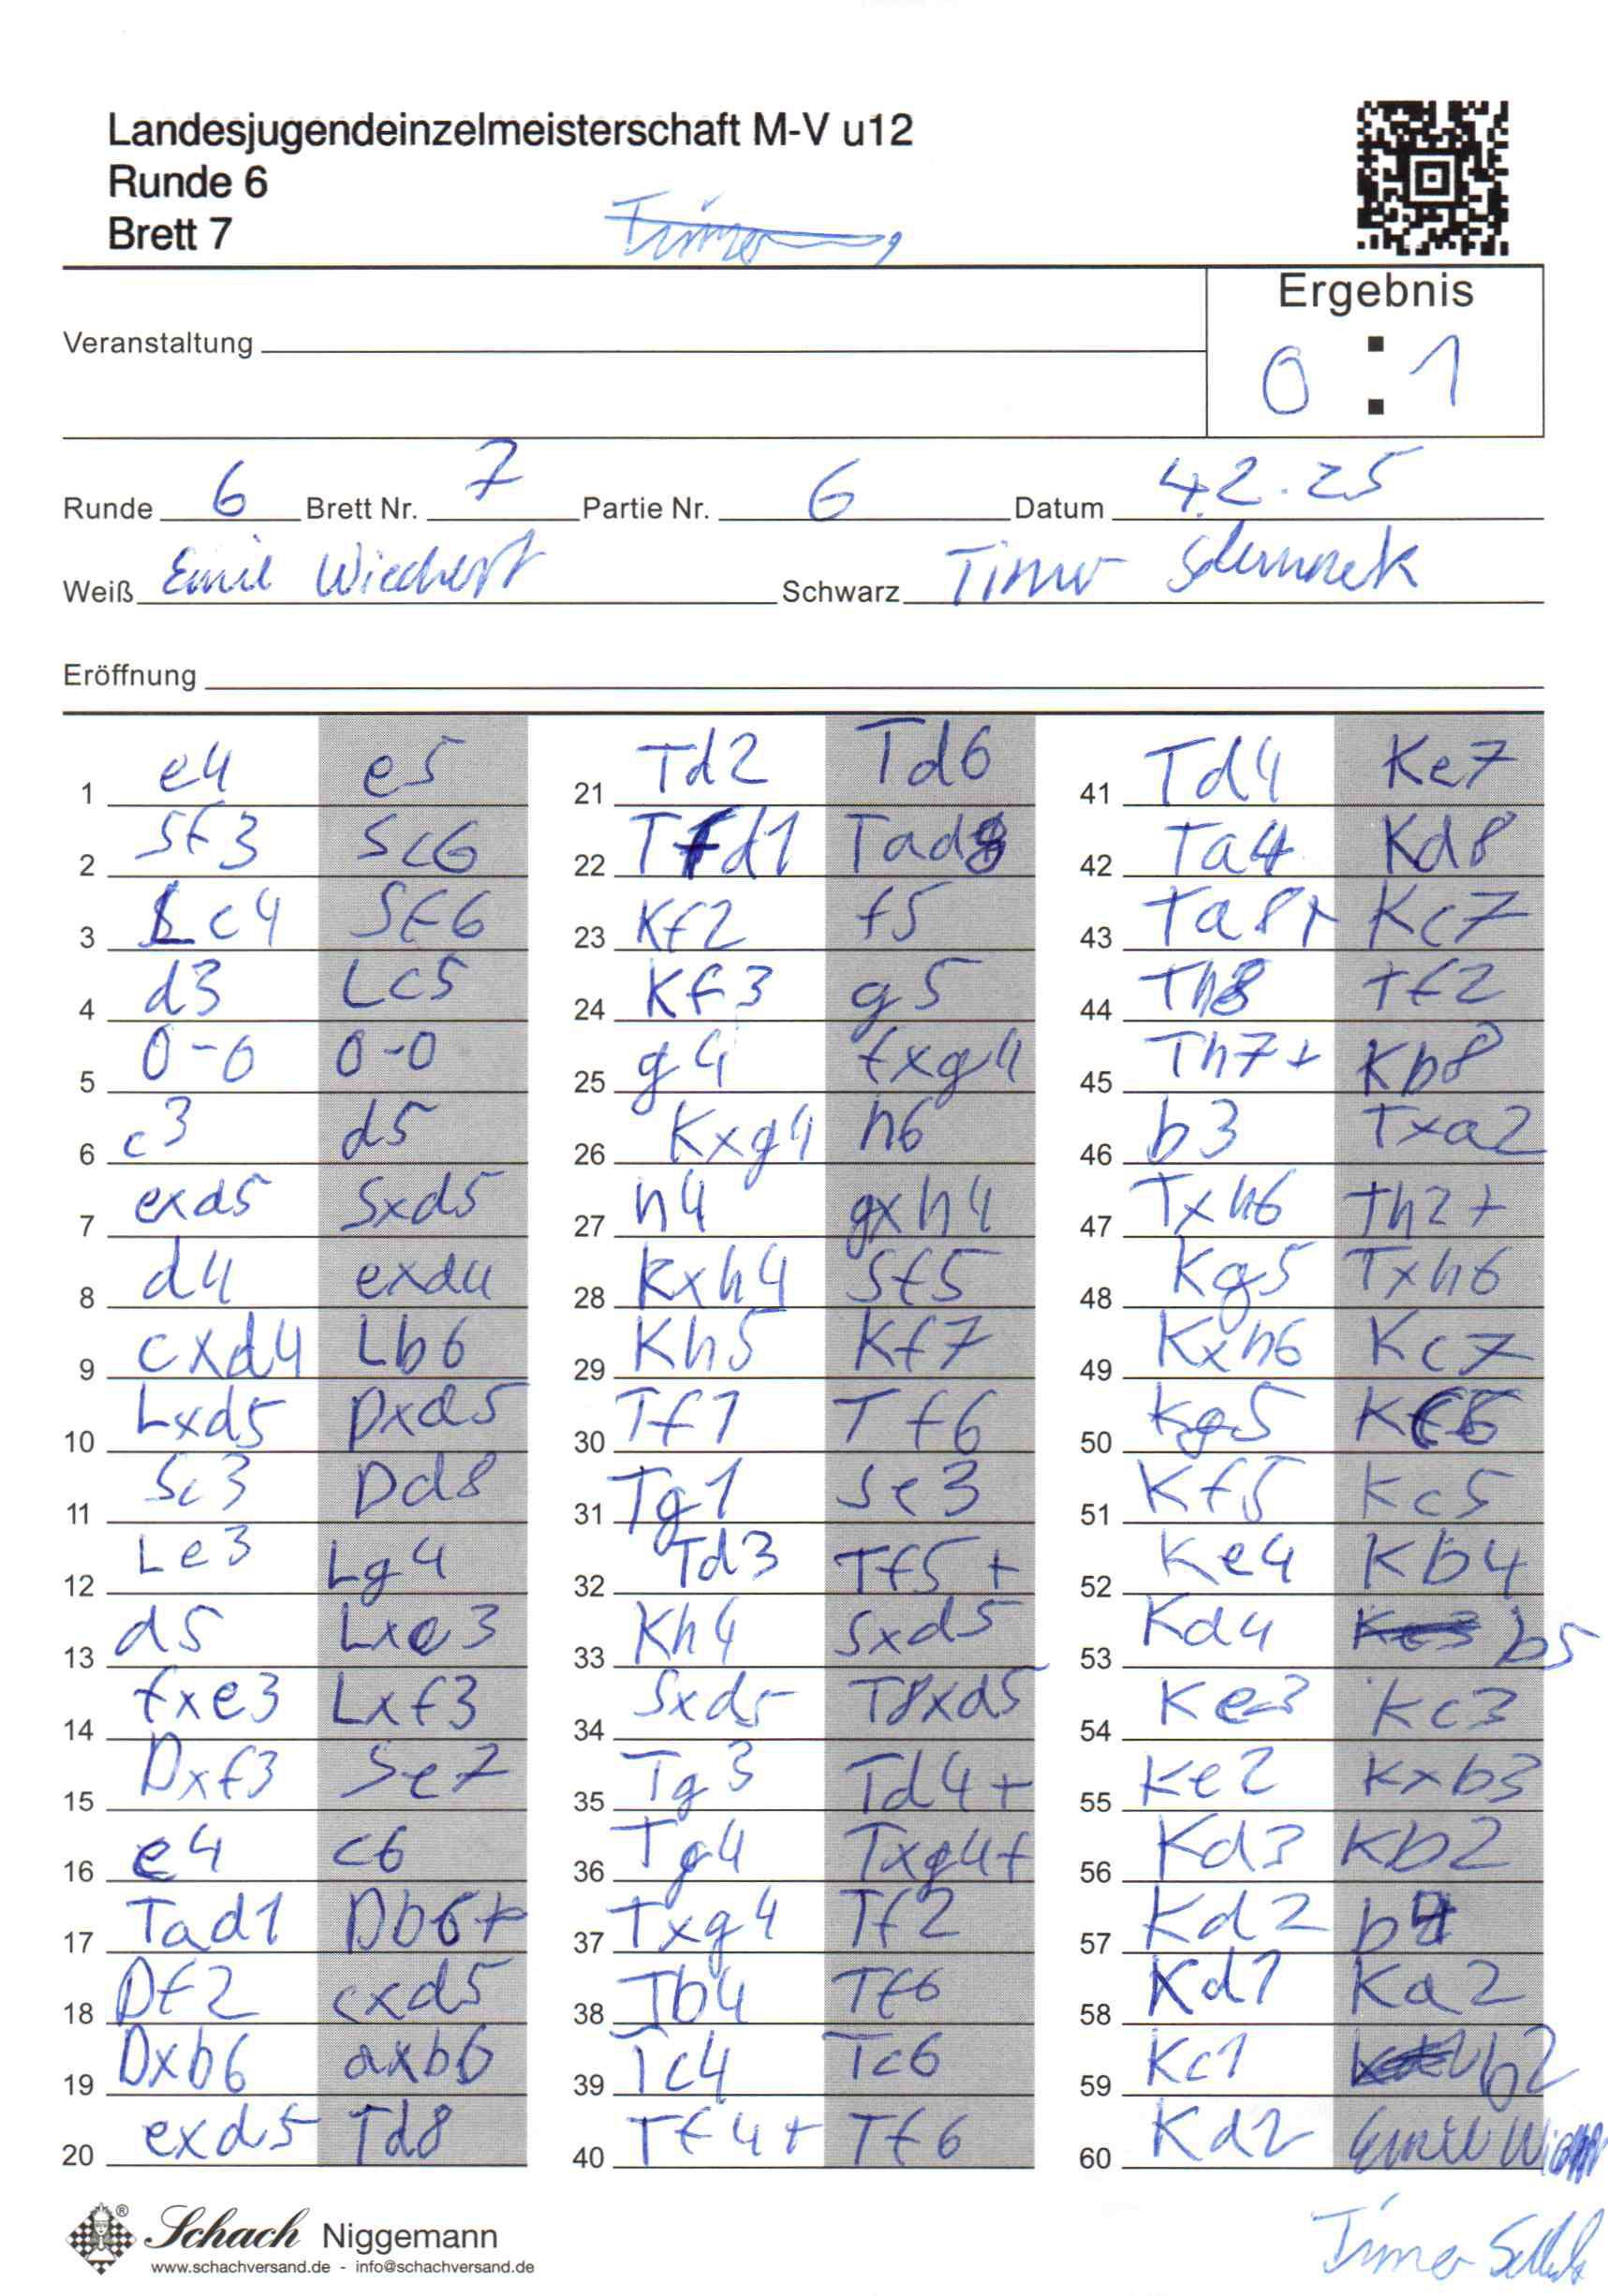 Landesjugendeinzelmeisterschaft M-V u12
Runde 6
Brett 7
Ergebnis
Veranstaltung
0 : 1
Runde 6 Brett Nr. 7 Partie Nr. 6 Datum 4.2.25
Weiß Emil Wiechert Schwarz Timo
Eröffnung
1 e4 e5
2 Sf3 Sc6
3 Lc4 Sf6
4 d3 Lc5
5 0-0 0-0
6 c3 d5
7 exd5 Sxd5
8 d4 exd4
9 cxd4 Lb6
10 Lxd5 Dxd5
11 Sc3 Dd8
12 Le3 Lg4
13 d5 Lxe3
14 fxe3 Lxf3
15 Dxf3 Se7
16 e4 c6
17 Tad1 Db6+
18 Df2 cxd5
19 Dxb6 axb6
20 exd5 Td8
21 Td2 Td6
22 Tfd1 Tad8
23 Kf2 f5
24 Kf3 g5
25 g4 fxg4
26 Kxg4 h6
27 h4 gxh4
28 Kxh4 Sf5
29 Kh5 Kf7
30 Tf1 Tf6
31 Tg1 Se3
32 Td3 Tf5+
33 Kh4 Sxd5
34 Sxd5 T8xd5
35 Tg3 Td4+
36 Tg4 Txg4+
37 Txg4 Tf2
38 Tb4 Tf6
39 Tc4 Tc6
40 Tf4+ Tf6
41 Td4 Ke7
42 Ta4 Kd8
43 Ta8+ Kc7
44 Th8 Tf2
45 Th7+ Kb8
46 b3 Txa2
47 Txh6 Th2+
48 Kg5 Txh6
49 Kxh6 Kc7
50 Kg5 Kc6
51 Kf5 Kc5
52 Ke4 Kb4
53 Kd4 b5
54 Ke3 Kc3
55 Ke2 Kxb3
56 Kd3 Kb2
57 Kd2 b4
58 Kd1 Ka2
59 Kc1 b2
60 Kd2 Emil
Schach Niggemann
www.schachversand.de - info@schachversand.de
Timo